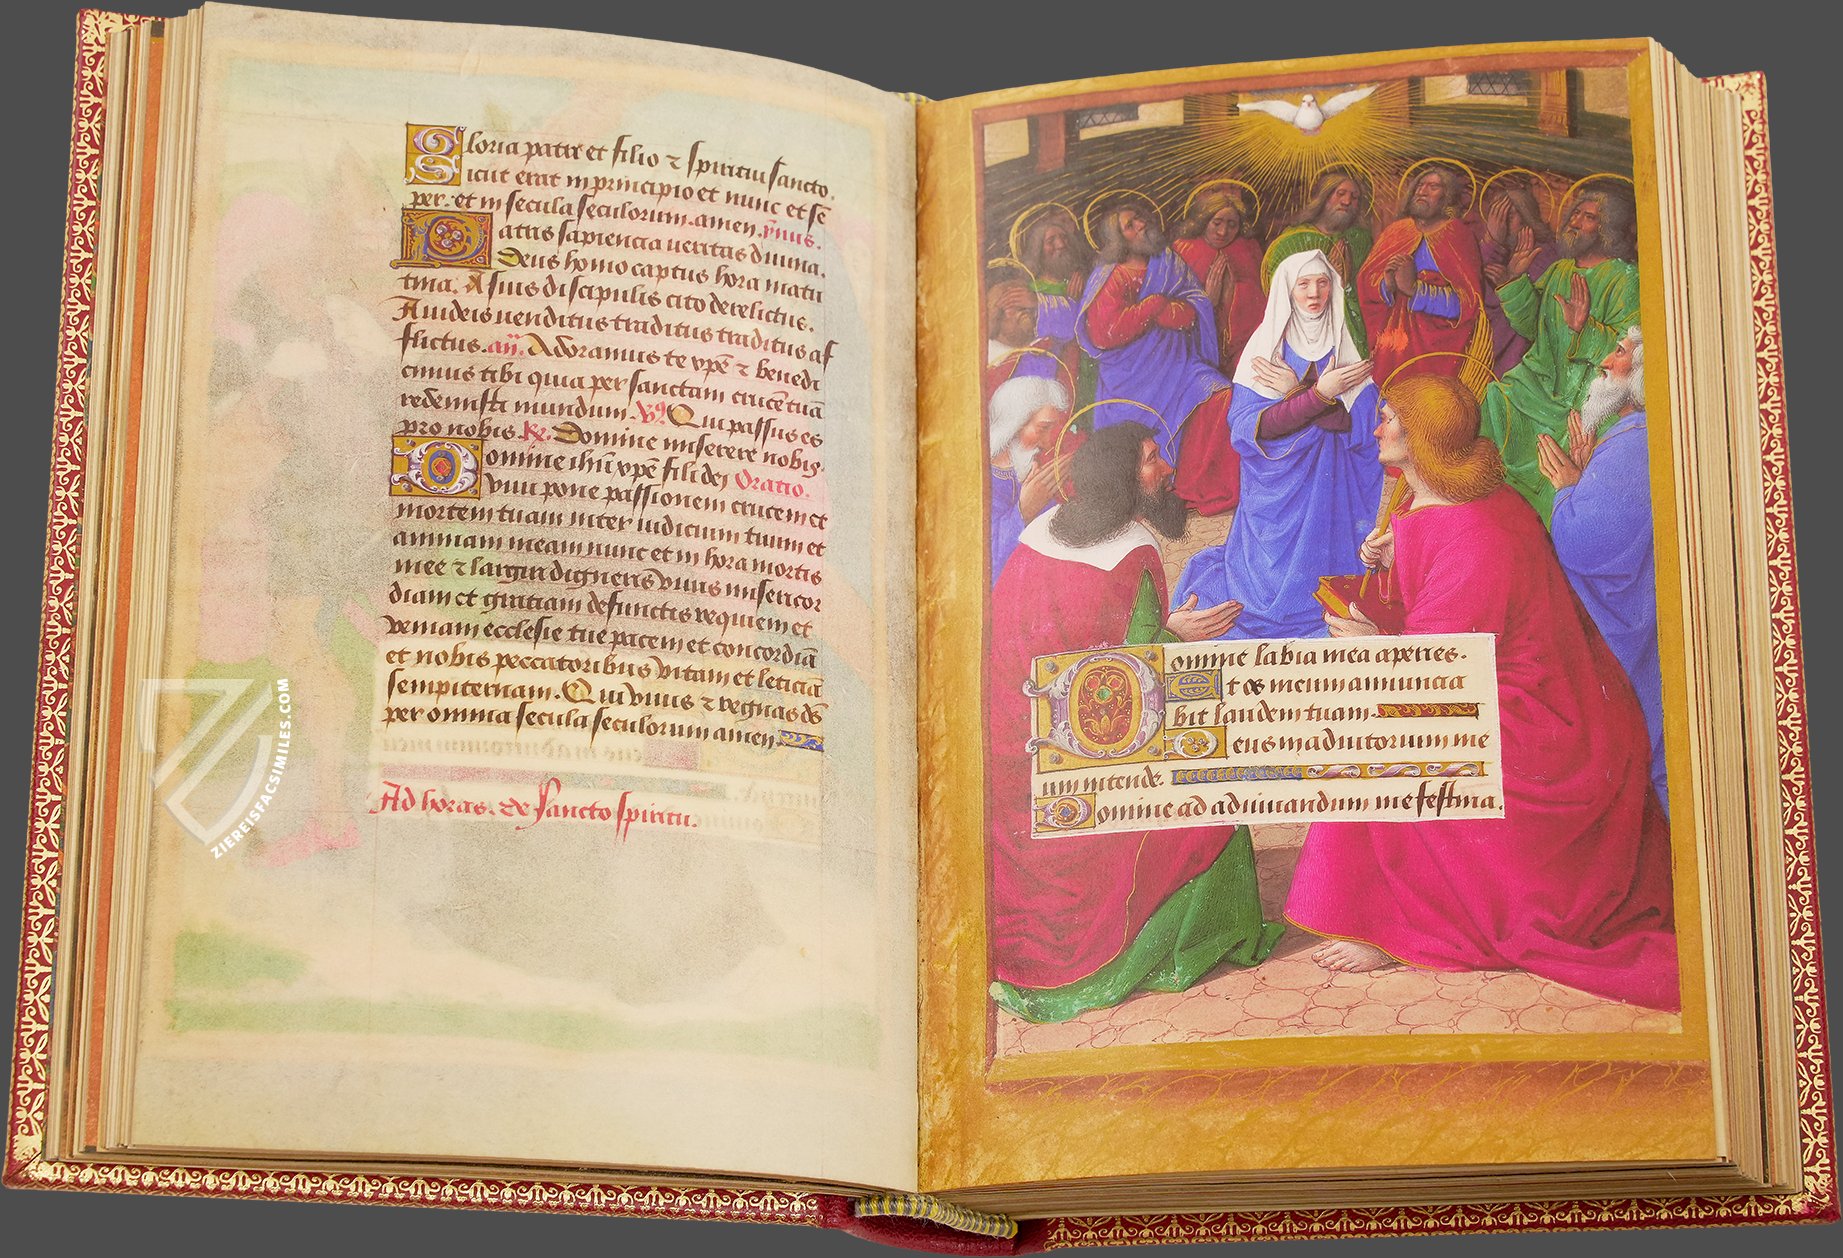 Gloria patri et filio ⁊ spiritui sancto.
Sicut erat in principio et nunc et sē
per. et in secula seculorum. amen. ỹnus.
Patris sapiencia ueritas diuina.
Deus homo captus hora matu
tina. A suis discipulis cito derelictus.
A iudeis uenditus traditus traditus af
flictus. añ. Adoramus te xp̄e ⁊ benedi
cimus tibi quia per sanctam crucē tuā
redemisti mundum. V̷9. Qui passus es
pro nobis. ℟. Domine miserere nobis.
Domine ih̄u xp̄e fili dei Oratio.
viui pone passionem crucem et
mortem tuam inter iudicium tuum et
animam meam nunc et in hora mortis
mee ⁊ largiri digneris viuis misericor
diam et gratiam defunctis requiem et
veniam ecclesie tue pacem et concordiā
et nobis peccatoribus vitam et leticiā
sempiternam. Qui viuis ⁊ regnas ds̄
per omnia secula seculorum amen.
Ad horas. de sancto spiritu.
Domine labia mea aperies.
Et os meum annuncia
bit laudem tuam.
Deus in adiutorium me
um intende.
Domine ad adiuuandum me festina.
ZIEREISFACSIMILES.COM